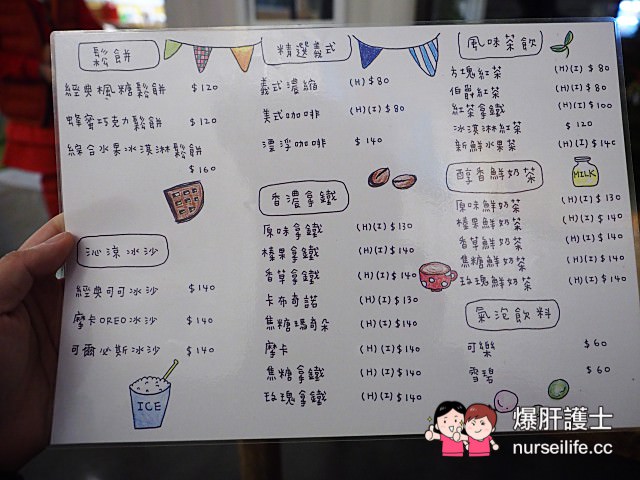 鬆餅
經典楓糖鬆餅 $120
蜂蜜巧克力鬆餅 $120
綜合水果冰淇淋鬆餅
$160
沁涼冰沙
經典可可冰沙 $140
摩卡OREO冰沙 $140
可爾必斯冰沙 $140
ICE
精選義式
義式濃縮 (H) $80
美式咖啡 (H)(I) $80
漂浮咖啡 $140
香濃拿鐵
原味拿鐵 (H)(I) $130
榛果拿鐵 (H)(I) $140
香草拿鐵 (H)(I) $140
卡布奇諾 (H)(I) $130
焦糖瑪奇朵 (H)(I) $140
摩卡 (H)(I) $140
焦糖拿鐵 (H)(I) $140
玫瑰拿鐵 (H)(I) $140
風味茶飲
玫瑰紅茶 (H)(I) $80
伯爵紅茶 (H)(I) $80
紅茶拿鐵 (H)(I) $100
冰淇淋紅茶 $120
新鮮水果茶 (H)(I) $140
醇香鮮奶茶
MILK
原味鮮奶茶 (H)(I) $130
榛果鮮奶茶 (H)(I) $140
香草鮮奶茶 (H)(I) $140
焦糖鮮奶茶 (H)(I) $140
玫瑰鮮奶茶 (H)(I) $140
氣泡飲料
可樂 $60
雪碧 $60
爆肝護士
nurseilife.cc